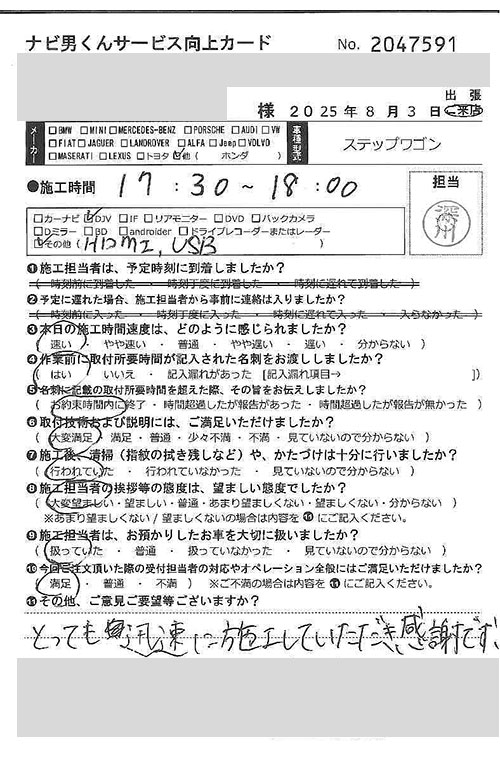 ナビ男くんサービス向上カード No. 2047591
様 2025年8月3日 出張 ・ 来店
メーカー □BMW □MINI □MERCEDES-BENZ □PORSCHE □AUDI □VW
□FIAT □JAGUER □LANDROVER □ALFA □Jeep □VOLVO
□MASERATI □LEXUS □トヨタ ☑他( ホンダ )
車種型式 ステップワゴン
●施工時間 17:30~18:00
担当
□カーナビ ☑DJV □IF □リアモニター □DVD □バックカメラ
□Dミラー □BD □androider □ドライブレコーダーまたはレーダー
☑その他( HDMI, USB )
❶施工担当者は、予定時刻に到着しましたか?
( 時刻前に到着した ・ 時刻丁度に到着した ・ 時刻に遅れて到着した )
❷予定に遅れた場合、施工担当者から事前に連絡は入りましたか?
( 時刻前に入った ・ 時刻丁度に入った ・ 時刻に遅れて入った ・ 入らなかった )
❸本日の施工時間速度は、どのように感じられましたか?
( 速い ・ やや速い ・ 普通 ・ やや遅い ・ 遅い ・ 分からない )
❹作業前に取付所要時間が記入された名刺をお渡ししましたか?
( はい ・ いいえ ・ 記入漏れがあった [記入漏れ項目→ ])
❺名刺に記載の取付所要時間を超えた際、その旨をお伝えしましたか?
( お約束時間内に終了 ・ 時間超過したが報告があった ・ 時間超過したが報告が無かった )
❻取付技術および説明には、ご満足いただけましたか?
( 大変満足 ・ 満足 ・ 普通 ・ 少々不満 ・ 不満 ・ 見ていないので分からない )
❼施工後、清掃(指紋の拭き残しなど)や、かたづけは十分に行いましたか?
( 行われていた ・ 行われていなかった ・ 見ていないので分からない )
❽施工担当者の挨拶等の態度は、望ましい態度でしたか?
( 大変望ましい・望ましい・普通・あまり望ましくない・望ましくない・分からない )
※あまり望ましくない/望ましくないの場合は内容を⓫にご記入ください。
❾施工担当者は、お預かりしたお車を大切に扱いましたか?
( 扱っていた ・ 普通 ・ 扱っていなかった ・ 見ていないので分からない )
❿今回ご注文頂いた際の受付担当者の対応やオペレーション全般にはご満足いただけましたか?
( 満足 ・ 普通 ・ 不満 ) ※ご不満の場合は内容を⓫にご記入ください。
⓫その他、ご意見ご要望等ございますか?
とっても迅速に施工していただき感謝です